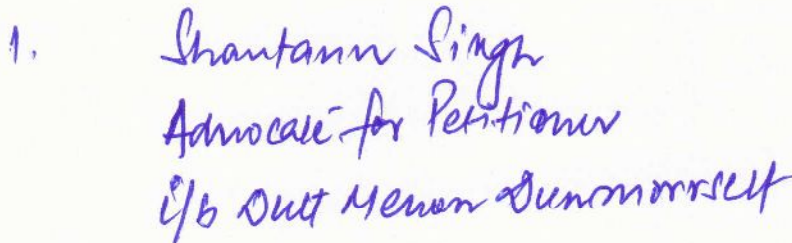 1. Shantanu Singh
Advocate for Petitioner
i/b Dutt Menon Dunmorrsett